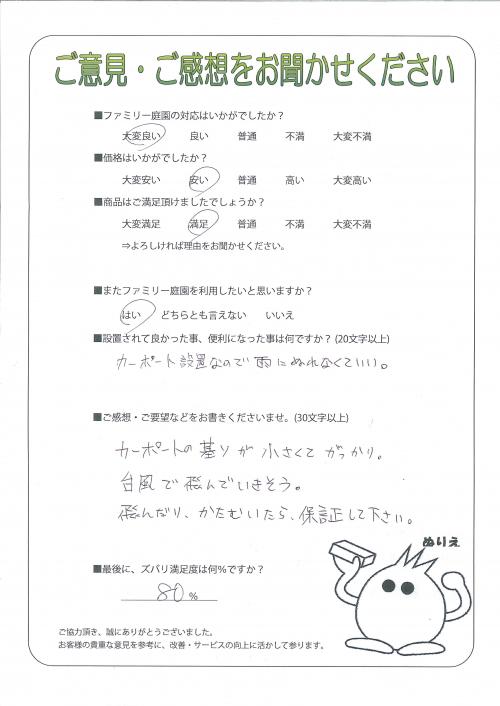 ご意見・ご感想をお聞かせください
■ファミリー庭園の対応はいかがでしたか?
大変良い 良い 普通 不満 大変不満
■価格はいかがでしたか?
大変安い 安い 普通 高い 大変高い
■商品はご満足頂けましたでしょうか?
大変満足 満足 普通 不満 大変不満
⇒よろしければ理由をお聞かせください。
■またファミリー庭園を利用したいと思いますか?
はい どちらとも言えない いいえ
■設置されて良かった事、便利になった事は何ですか?(20文字以上)
カーポート設置なので雨にぬれなくていい。
■ご感想・ご要望などをお書きくださいませ。(30文字以上)
カーポートの基りが小さくてがっかり。
台風で飛んでいきそう。
飛んだり、かたむいたら、保証して下さい。
ぬりえ
■最後に、ズバリ満足度は何%ですか?
80 %
ご協力頂き、誠にありがとうございました。
お客様の貴重な意見を参考に、改善・サービスの向上に活かして参ります。